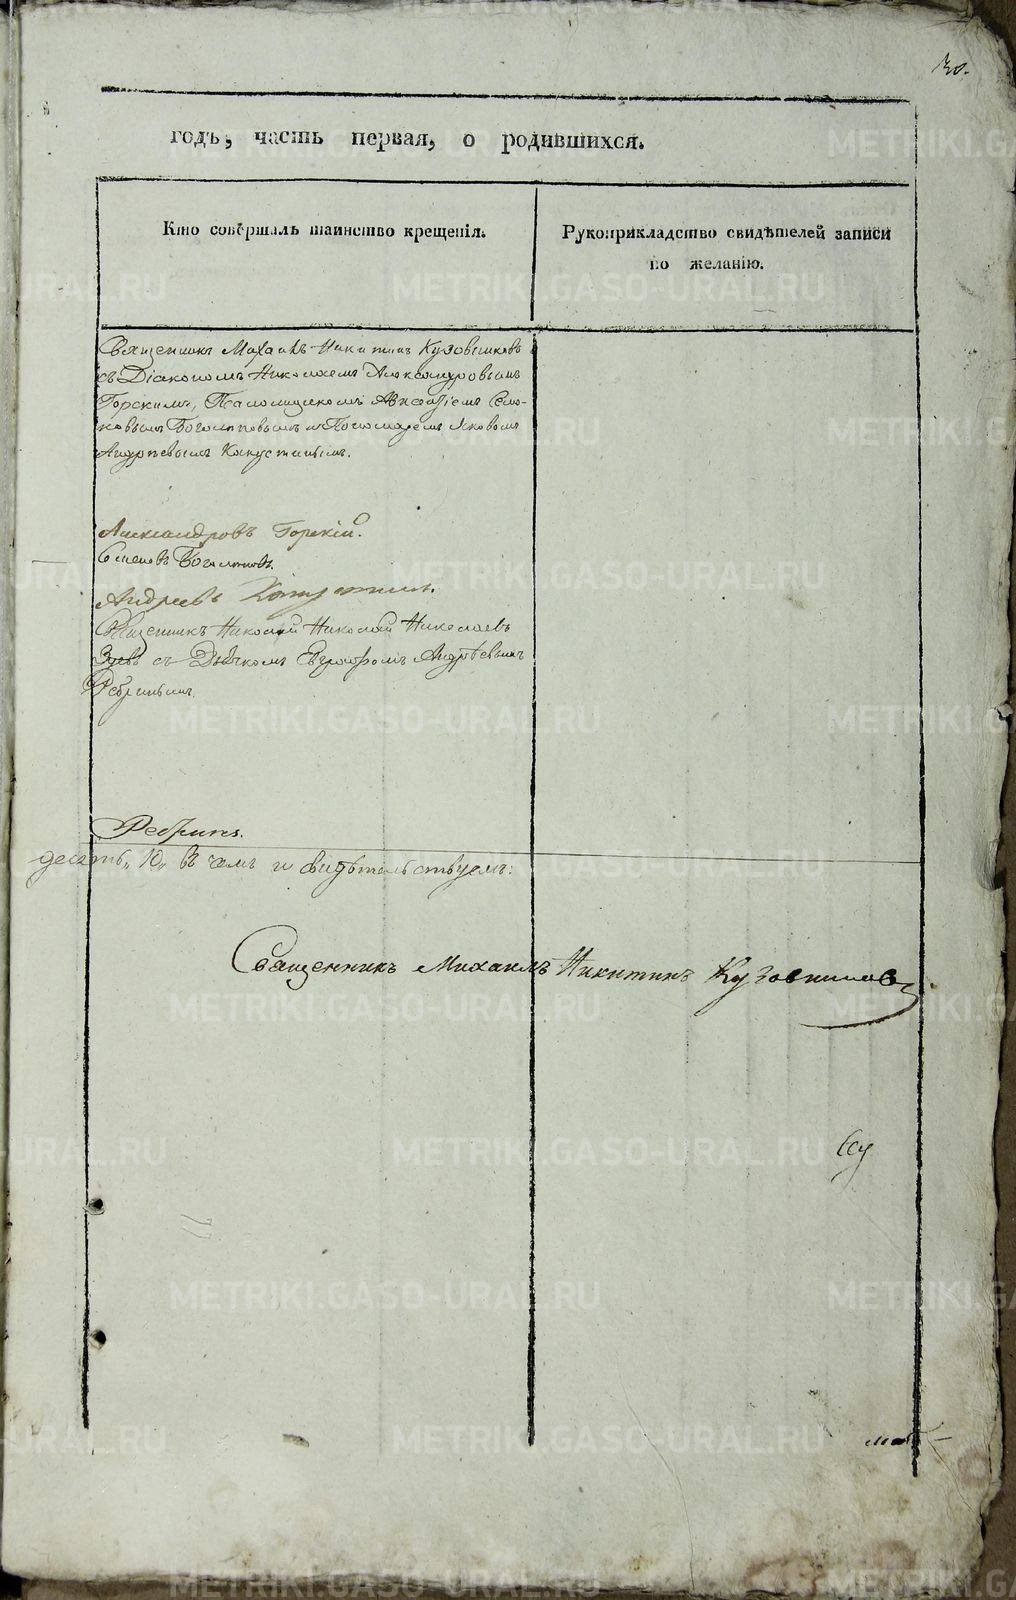 30.
годъ, часть первая, о родившихся.
Кто совершалъ таинство крещенія.
Рукоприкладство свидѣтелей записи
по желанію.
Священникъ Михаилъ Никитинъ Кузовниковъ
съ Діакономъ Николаемъ Александровымъ
Горскимъ, Псаломщикомъ Семе-
новымъ Боголеповымъ и Пономаремъ Яковомъ
Андреевымъ Капустинымъ.
Александровъ Горскій.
Семеновъ Боголеповъ.
Андреевъ Капустинъ.
Священникъ Николай Николай Николаевъ
съ Дьячкомъ Евграфомъ Андреевымъ
Ребринымъ.
Ребринъ.
десять, 10, въ чемъ и свидѣтельствуемъ:
Священникъ Михаилъ Никитинъ Кузовниковъ
METRIKI.GASO-URAL.RU